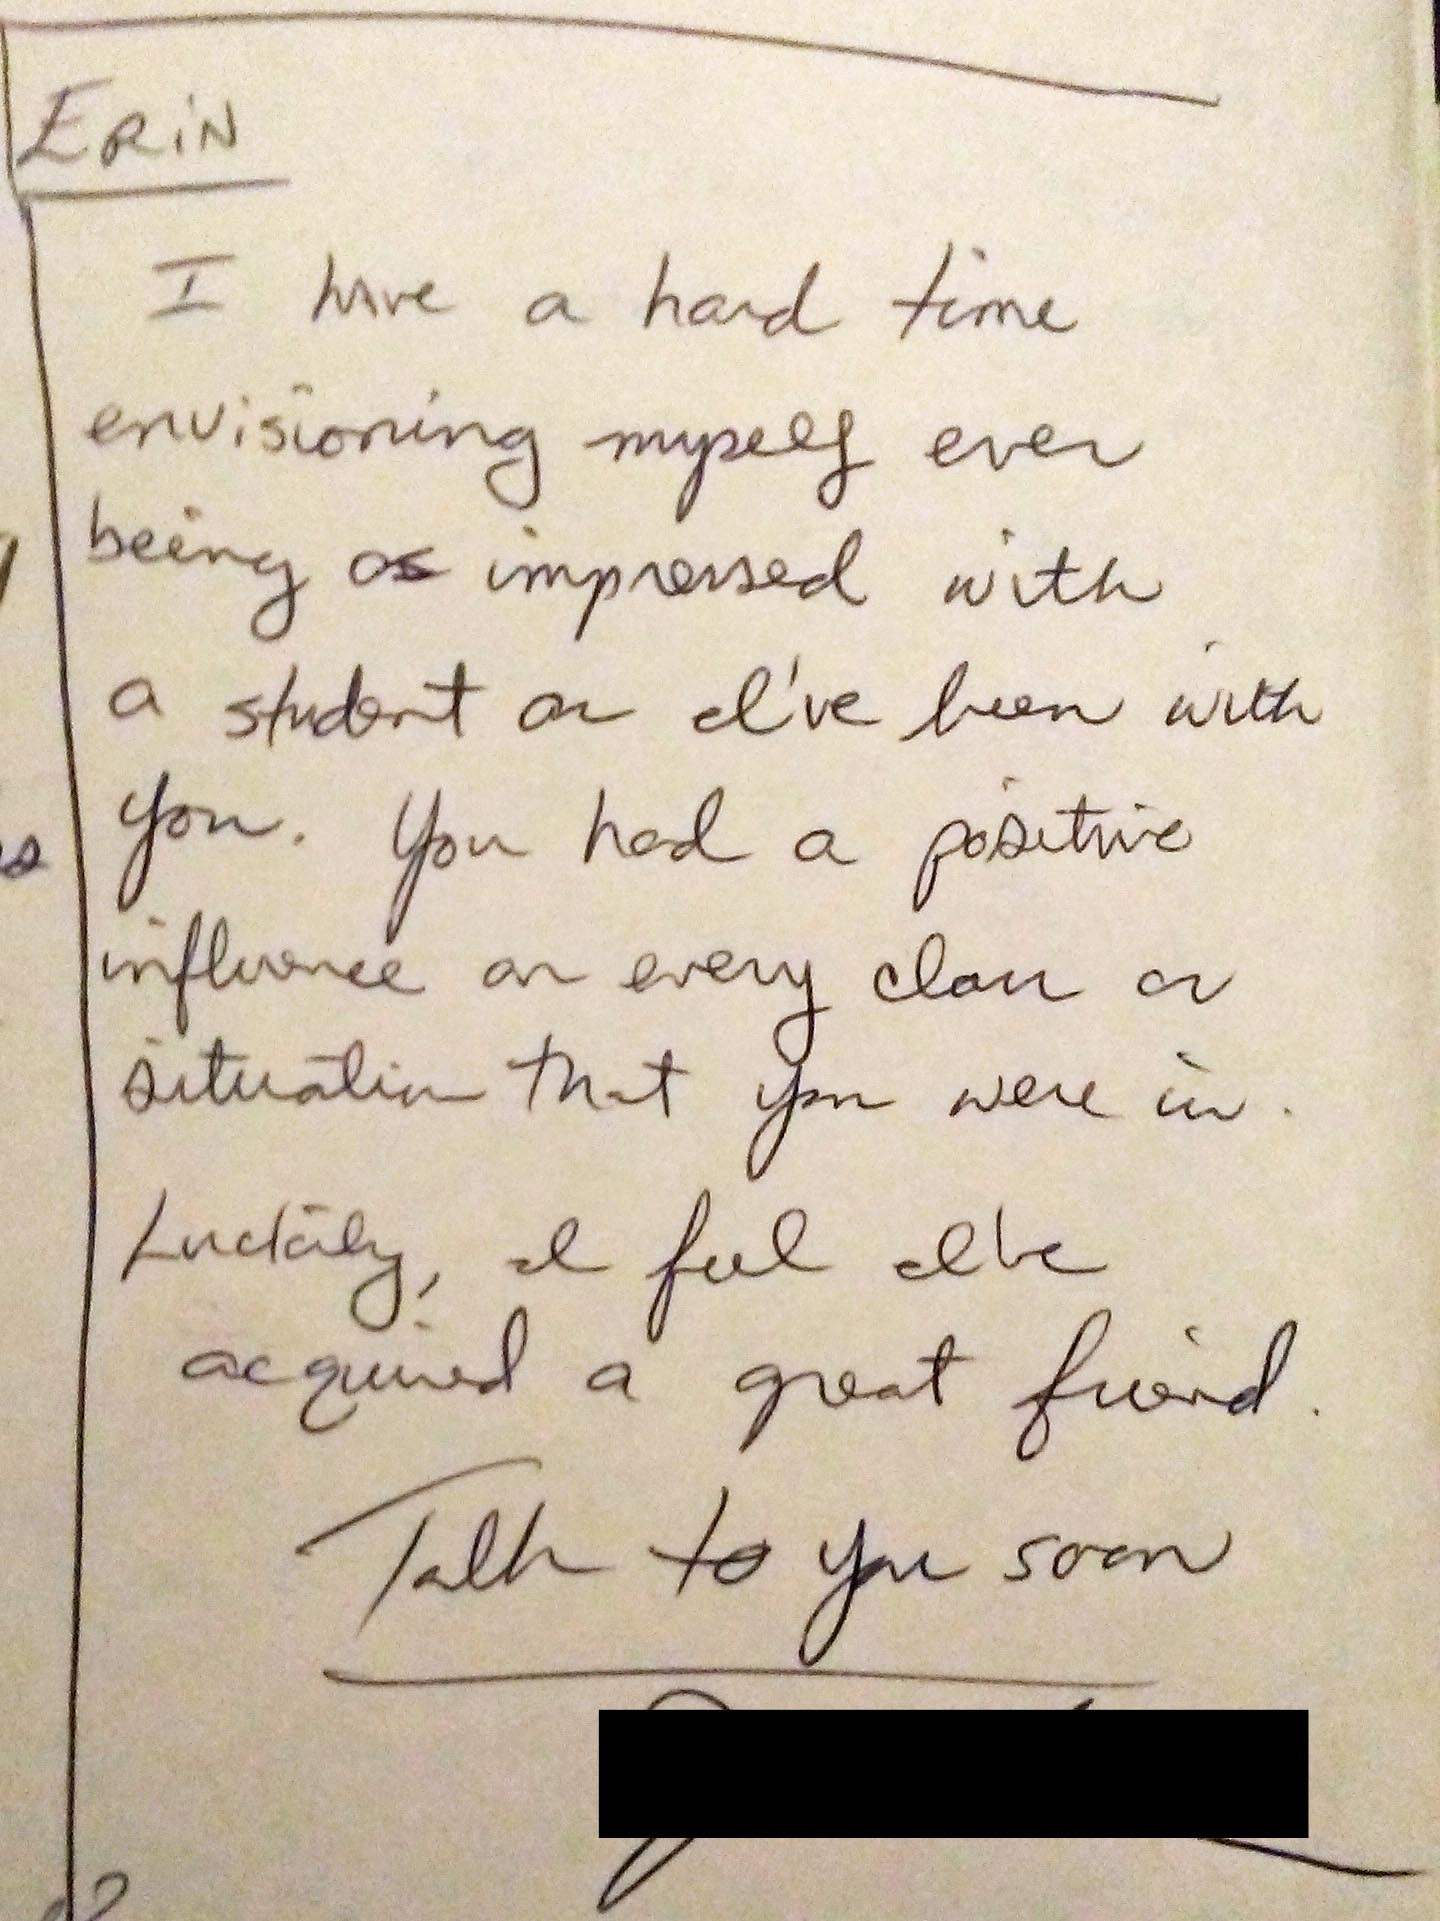 ERiN
I have a hard time
envisioning myself ever
being as impressed with
a student as I've been with
you. You had a positive
influence on every class or
situation that you were in.
Luckily, I feel I've
acquired a great friend.
Talk to you soon